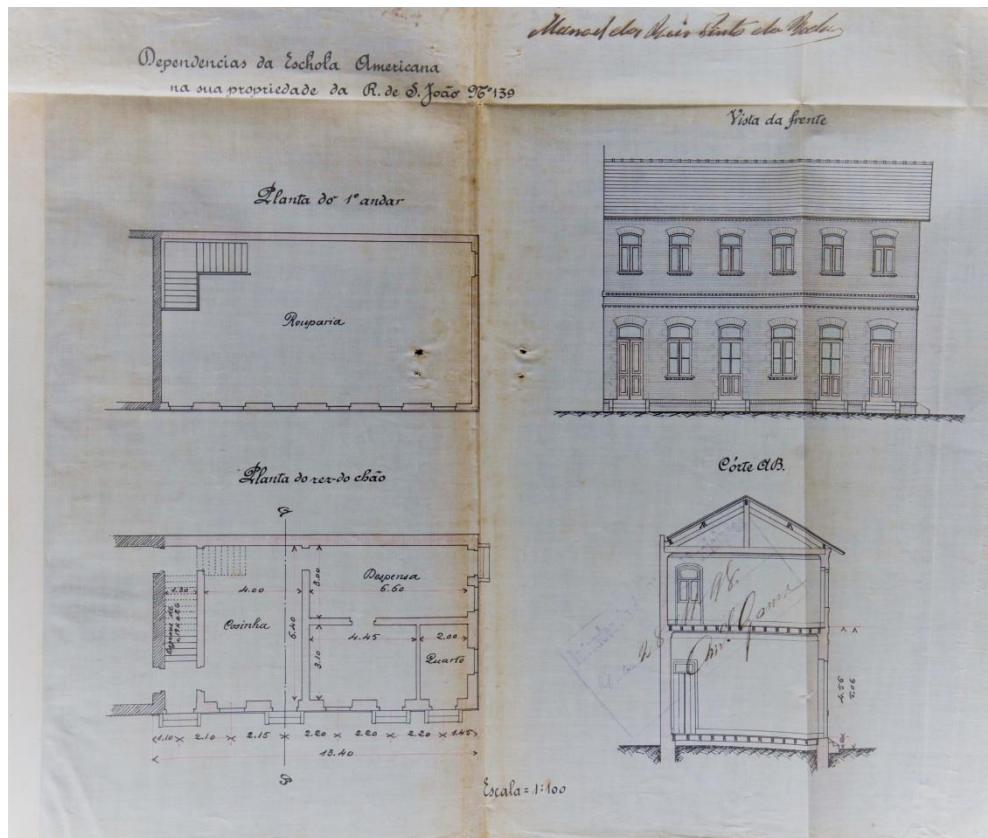 Manoel dos Reis Pinto da Rocha
Dependencias da Eschola Americana
na sua propriedade da R. de S. João Nº 139
Vista da frente
Planta do 1º andar
Rouparia
Planta do rez-do chão
Córte AB.
Despensa
5.60
3.00
1.30
4.00
Cosinha
6.40
4.45
2.00
3.10
Quarto
1.10 2.10 2.15 2.20 2.20 2.20 1.45
13.40
4.56
5.06
Escala = 1:100